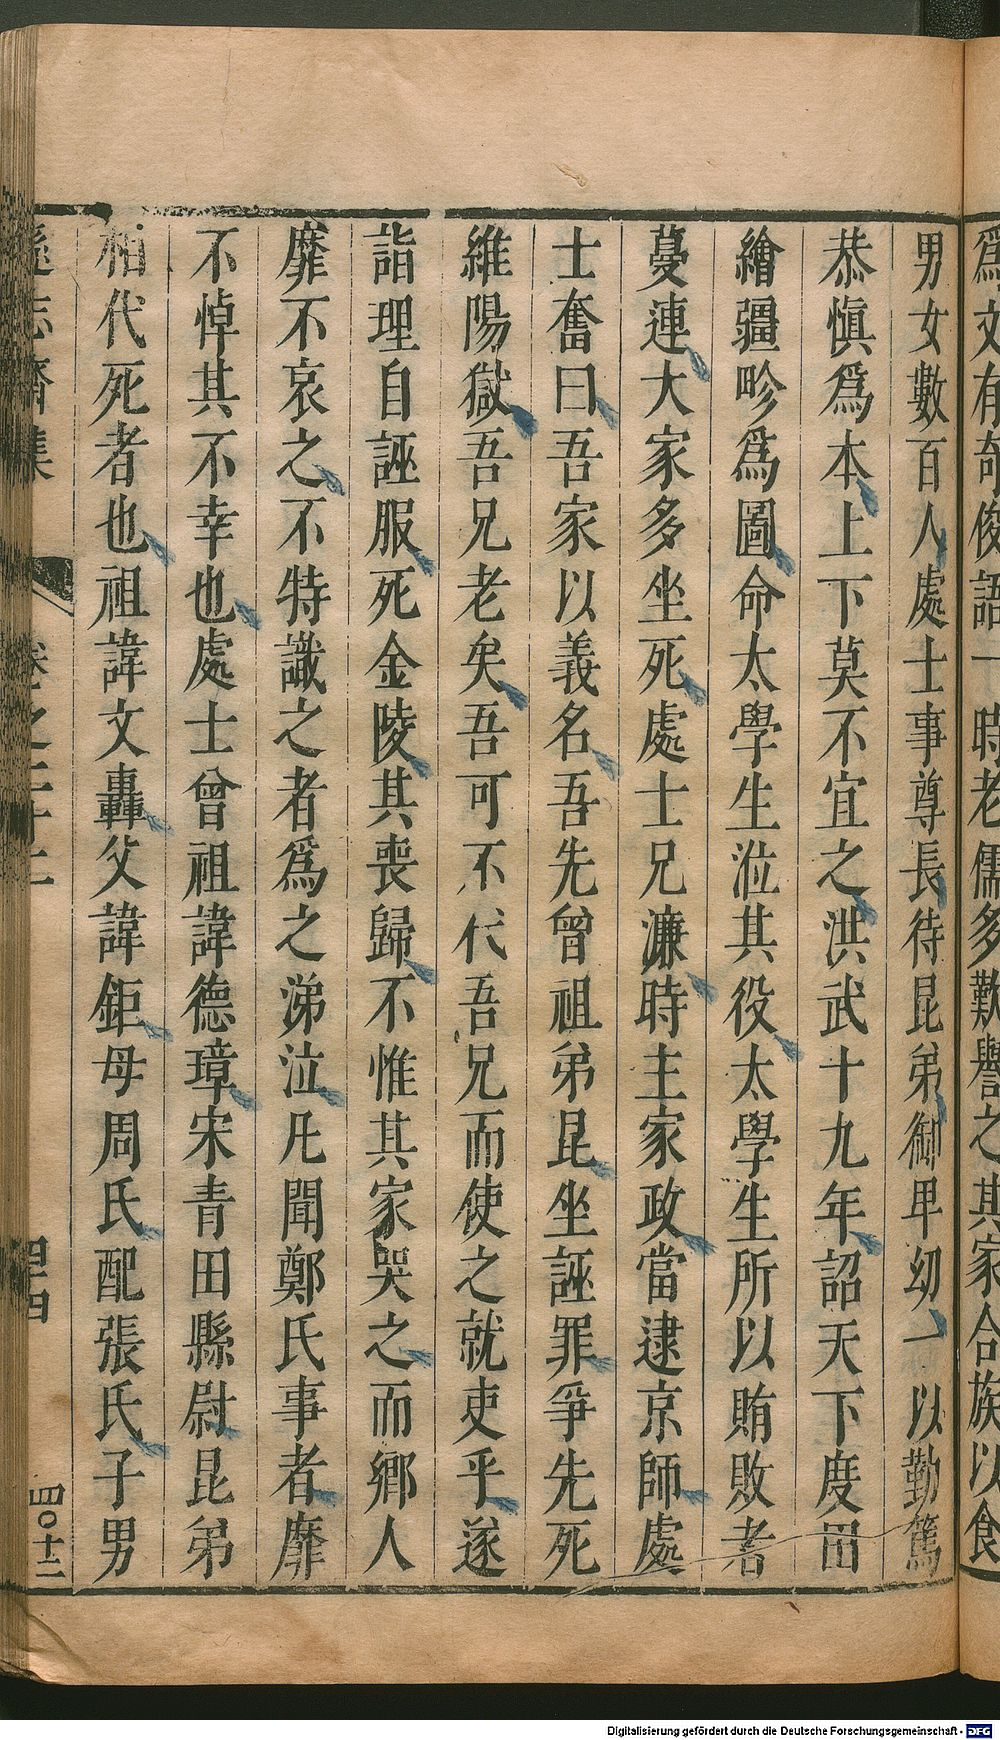 爲文有奇俊語一時老儒多歎譽之其家合族以食
男女數百人處士事尊長待昆弟御卑幼一以勤篤
恭愼爲本上下莫不宜之洪武十九年詔天下度田
繪疆畛爲圖命太學生涖其役太學生所以賄敗者
蔓連大家多坐死處士兄濂時主家政當逮京師處
士奮曰吾家以義名吾先曾祖弟昆坐誣罪爭先死
維陽獄吾兄老矣吾可不代吾兄而使之就吏乎遂
詣理自誣服死金陵其喪歸不惟其家哭之而鄉人
靡不哀之不特識之者爲之涕泣凡聞鄭氏事者靡
不悼其不幸也處士曾祖諱德璋宋青田縣尉昆弟
相代死者也祖諱文轟父諱鉅母周氏配張氏子男
遜志齋集 卷之二十二 四〇十二
Digitalisierung gefördert durch die Deutsche Forschungsgemeinschaft - DFG